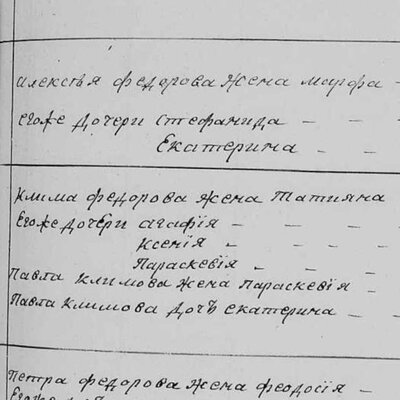 Алексѣя Федорова жена Марфа
Егоже дочери Стефанида
Екатерина
Клима Федорова жена Татияна
Егоже дочери Агафія
Ксенія
Параскевія
Павла Климова жена Параскевія
Павла Климова дочь Екатерина
Петра Федорова жена Феодосія
Егоже